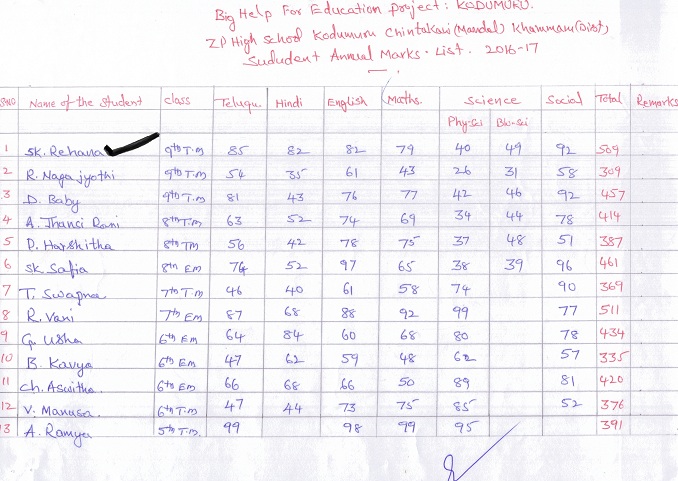 Big Help For Education project : KODUMURU.
ZP High School Kodumuru Chintakani (Mandal) Khammam (Dist)
Sududent Annual Marks. List. 2016-17
S.NO Name of the Student Class Telugu. Hindi English Maths. Science Social Total Remarks
Phy-Sci Bio-Sci
1 SK. Rehana 9th T.M 85 82 82 79 40 49 92 509
2 R. Naga jyothi 9th T.M 54 35 61 43 26 31 58 309
3 D. Baby 9th T.M 81 43 76 77 42 46 92 457
4 A. Jhansi Rani 8th T.M 63 52 74 69 34 44 78 414
5 P. Harshitha 8th TM 56 42 78 75 37 48 51 387
6 SK Safia 8th EM 74 52 97 65 38 39 96 461
7 T. Swapna 7th T.M 46 40 61 58 74 90 369
8 R. Vani 7th EM 87 68 88 92 99 77 511
9 G. Usha 6th EM 64 84 60 68 80 78 434
10 B. Kavya 6th EM 47 62 59 48 62 57 335
11 Ch. Aswitha. 6th EM 66 68 66 50 89 81 420
12 V. Manusa. 6th T.M 47 44 73 75 85 52 376
13 A. Ramya 5th T.M. 99 98 99 95 391